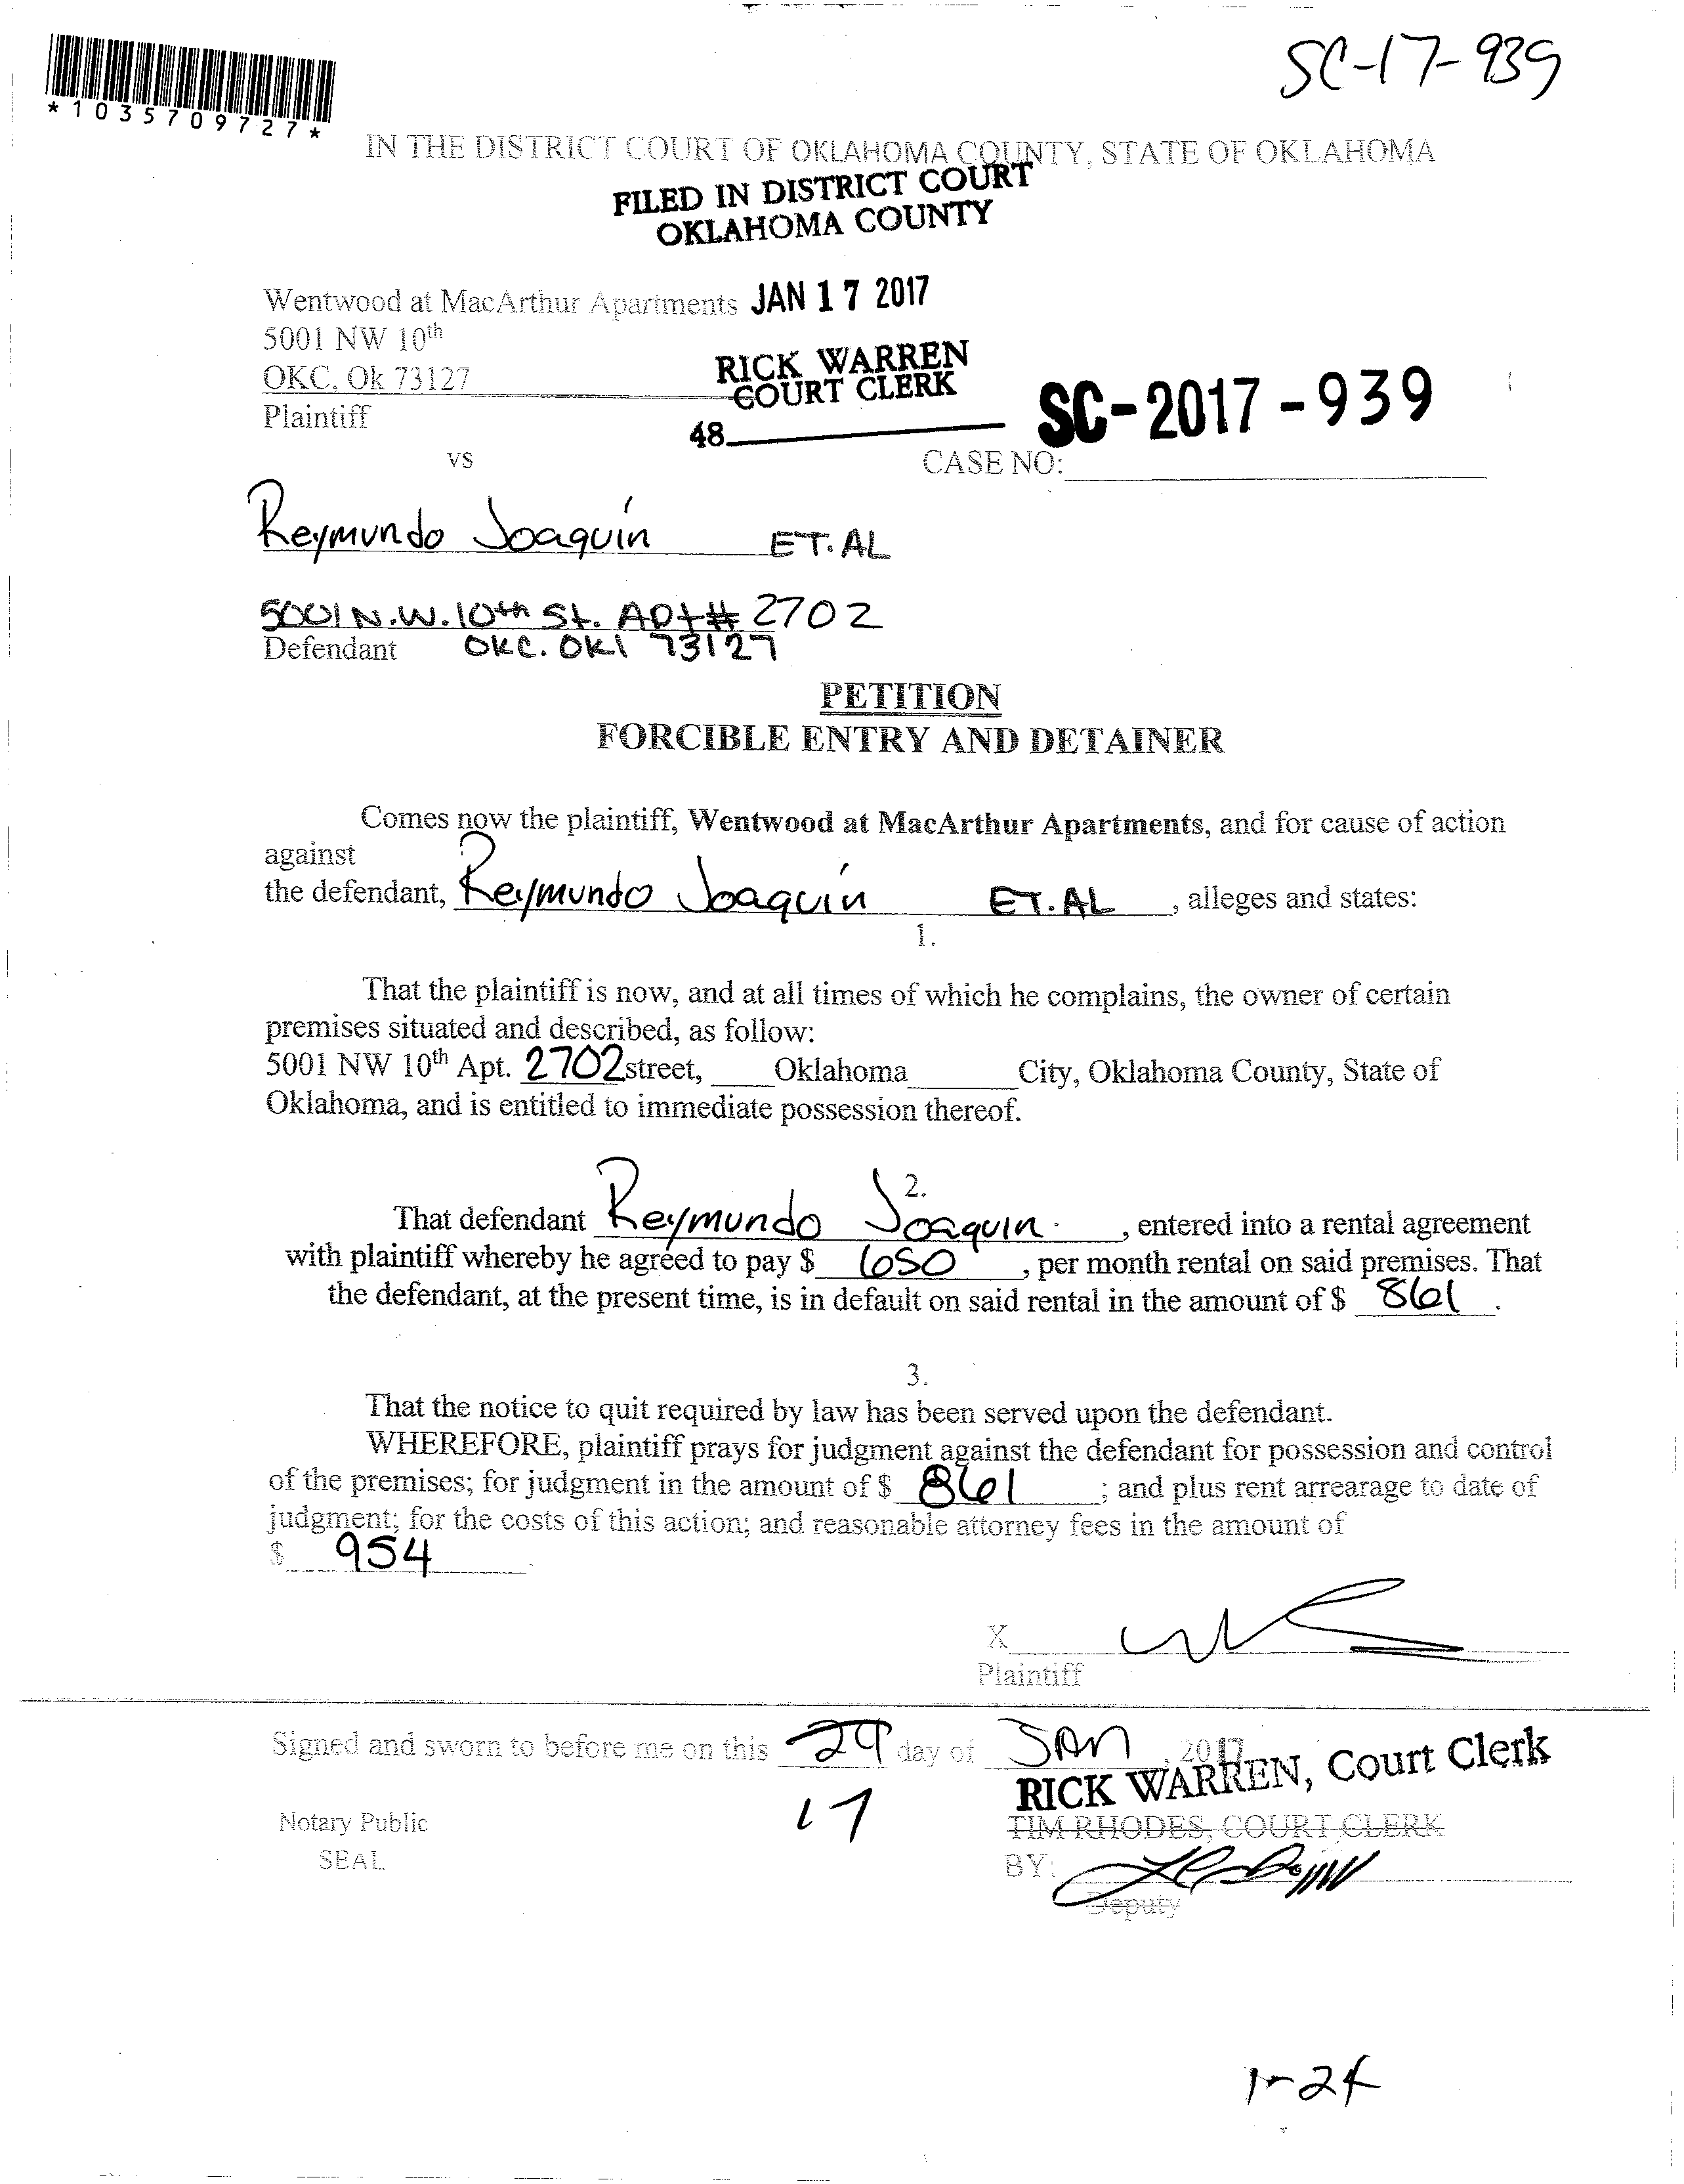 SC-17-939
*1035709727*
IN THE DISTRICT COURT OF OKLAHOMA COUNTY, STATE OF OKLAHOMA
FILED IN DISTRICT COURT
OKLAHOMA COUNTY
Wentwood at MacArthur Apartments JAN 17 2017
5001 NW 10th
OKC, Ok 73127
RICK WARREN
COURT CLERK
Plaintiff
48
SC-2017-939
vs
CASE NO:
Reymundo Joaquin ET.AL
5001 N.W. 10th St. Apt# 2702
Defendant OKC. OKl 73127
PETITION
FORCIBLE ENTRY AND DETAINER
Comes now the plaintiff, Wentwood at MacArthur Apartments, and for cause of action
against
the defendant, Reymundo Joaquin ET.AL , alleges and states:
1.
That the plaintiff is now, and at all times of which he complains, the owner of certain
premises situated and described, as follow:
5001 NW 10th Apt. 2702 street, Oklahoma City, Oklahoma County, State of
Oklahoma, and is entitled to immediate possession thereof.
2.
That defendant Reymundo Joaquin , entered into a rental agreement
with plaintiff whereby he agreed to pay $ 650 , per month rental on said premises. That
the defendant, at the present time, is in default on said rental in the amount of $ 861 .
3.
That the notice to quit required by law has been served upon the defendant.
WHEREFORE, plaintiff prays for judgment against the defendant for possession and control
of the premises; for judgment in the amount of $ 861 ; and plus rent arrearage to date of
judgment; for the costs of this action; and reasonable attorney fees in the amount of
$ 954
X
Plaintiff
Signed and sworn to before me on this day of JAN , 2017
17
RICK WARREN, Court Clerk
Notary Public
TIM RHODES, COURT CLERK
SEAL
BY:
Deputy
1-24